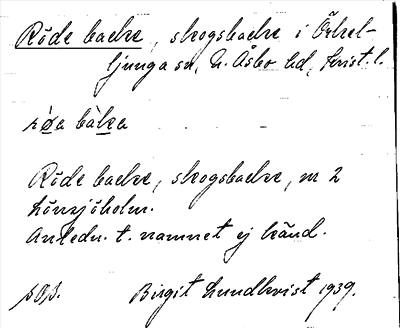 Röde backe, skogsbacke i Örkel-
ljunga sn, N. Åsbo hd, Krist. l.
röa bàka
Röde backe, skogsbacke, m 2
Hönsjöholm.
Anledn. t. namnet ej känd.
Birgit Lundkvist 1939.